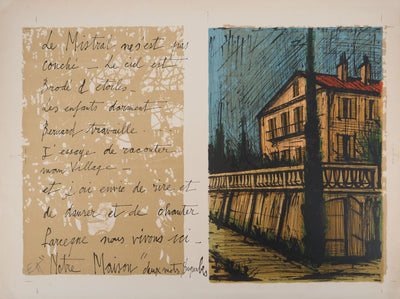 Le Mistral ne s'est pas
couché _ Le ciel est
Brodé d'étoiles
Les enfants dorment _
Bernard travaille _
J'essaye de raconter
mon village _
et j'ai envie de rire et
de danser et de chanter
parceque nous vivons ici _
"Notre Maison" deux mots